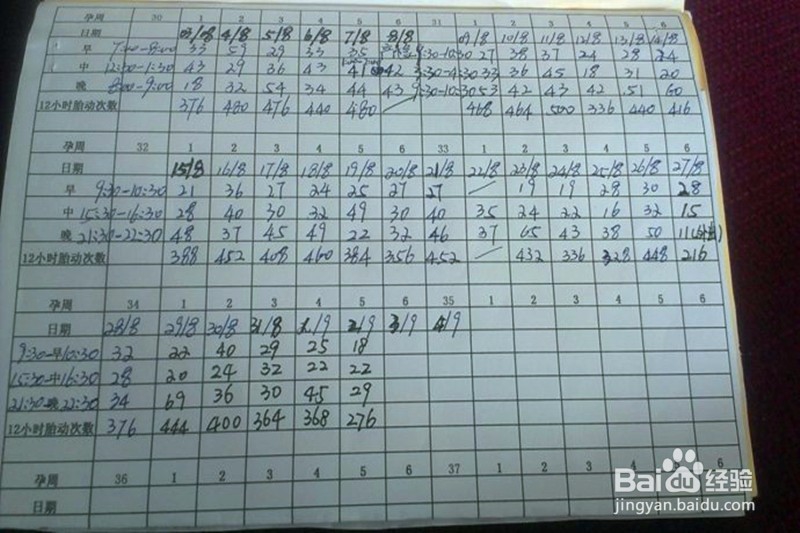 孕周 30 1 2 3 4 5 6 31 1 2 3 4 5 6
日期 4/8 5/8 6/8 7/8 8/8 09/8 10/8 11/8 12/8 13/8 14/8
早 7:00-8:00 33 59 29 33 35 9:30-10:30 27 38 37 24 28 24
中 12:30-1:30 43 29 36 43 41 42 3:30-4:30 33 36 45 18 31 20
晚 8:00-9:00 18 32 54 34 44 43 9:30-10:30 53 42 43 42 51 60
12小时胎动次数 376 480 476 440 480 468 464 500 336 440 416
孕周 32 1 2 3 4 5 6 33 1 2 3 4 5 6
日期 15/8 16/8 17/8 18/8 19/8 20/8 21/8 22/8 23/8 24/8 25/8 26/8 27/8
早 9:30-10:30 21 36 27 24 25 27 27 19 19 28 30 28
中 15:30-16:30 28 40 30 32 49 30 40 35 24 22 16 32 15
晚 21:30-22:30 48 37 45 49 22 32 46 37 65 43 38 50 11
12小时胎动次数 388 452 408 460 384 356 452 432 336 328 448 216
孕周 34 1 2 3 4 5 6 35 1 2 3 4 5 6
日期 28/8 29/8 30/8 31/8 1/9 2/9 3/9 4/9
9:30-早10:30 32 22 40 29 25 18
15:30-中16:30 28 20 24 32 22 22
21:30-晚22:30 34 69 36 30 45 29
12小时胎动次数 376 444 400 364 368 276
孕周 36 1 2 3 4 5 6 37 1 2 3 4 5 6
日期
Baidu经验
jingyan.baidu.com